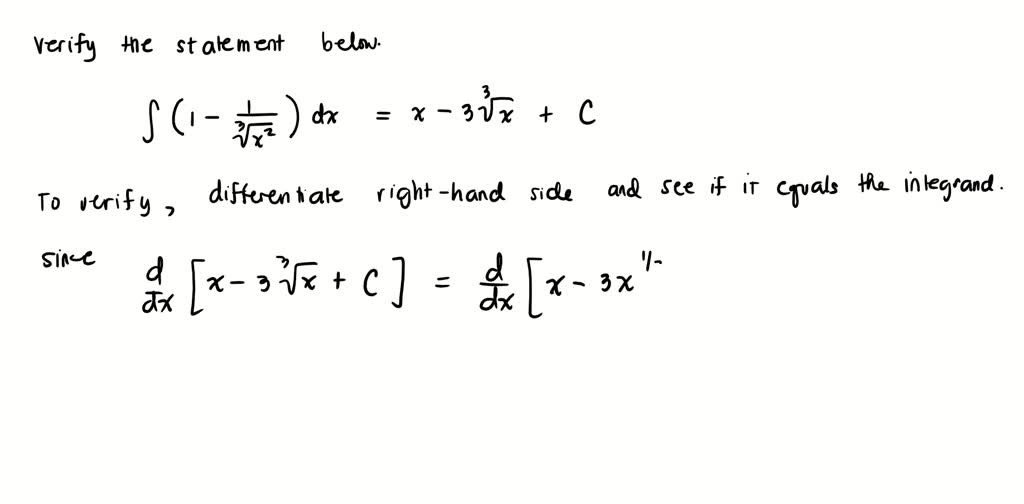 verify the statement below.
∫(1 - 1/∛x²) dx = x - 3∛x + C
To verify, differentiate right-hand side and see if it equals the integrand.
since d/dx [x - 3∛x + C] = d/dx [x - 3x^1/-